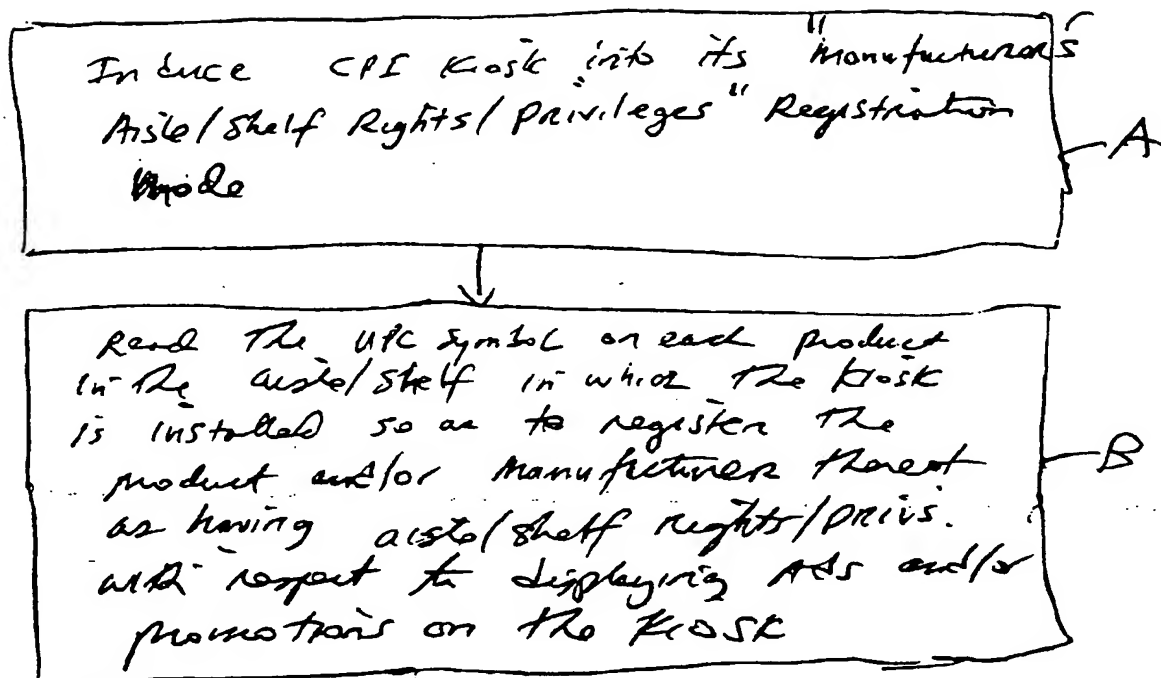 Induce CPI Kiosk into its "Manufacturer's
Aisle/Shelf Rights/Privileges" Registration
Mode
A
Read The UPC Symbol on each product
in the aisle/shelf in which the Kiosk
is installed so as to register the
product and/or Manufacturer thereof
as having aisle/shelf rights/privs.
with respect to displaying Ads and/or
promotions on the Kiosk
B